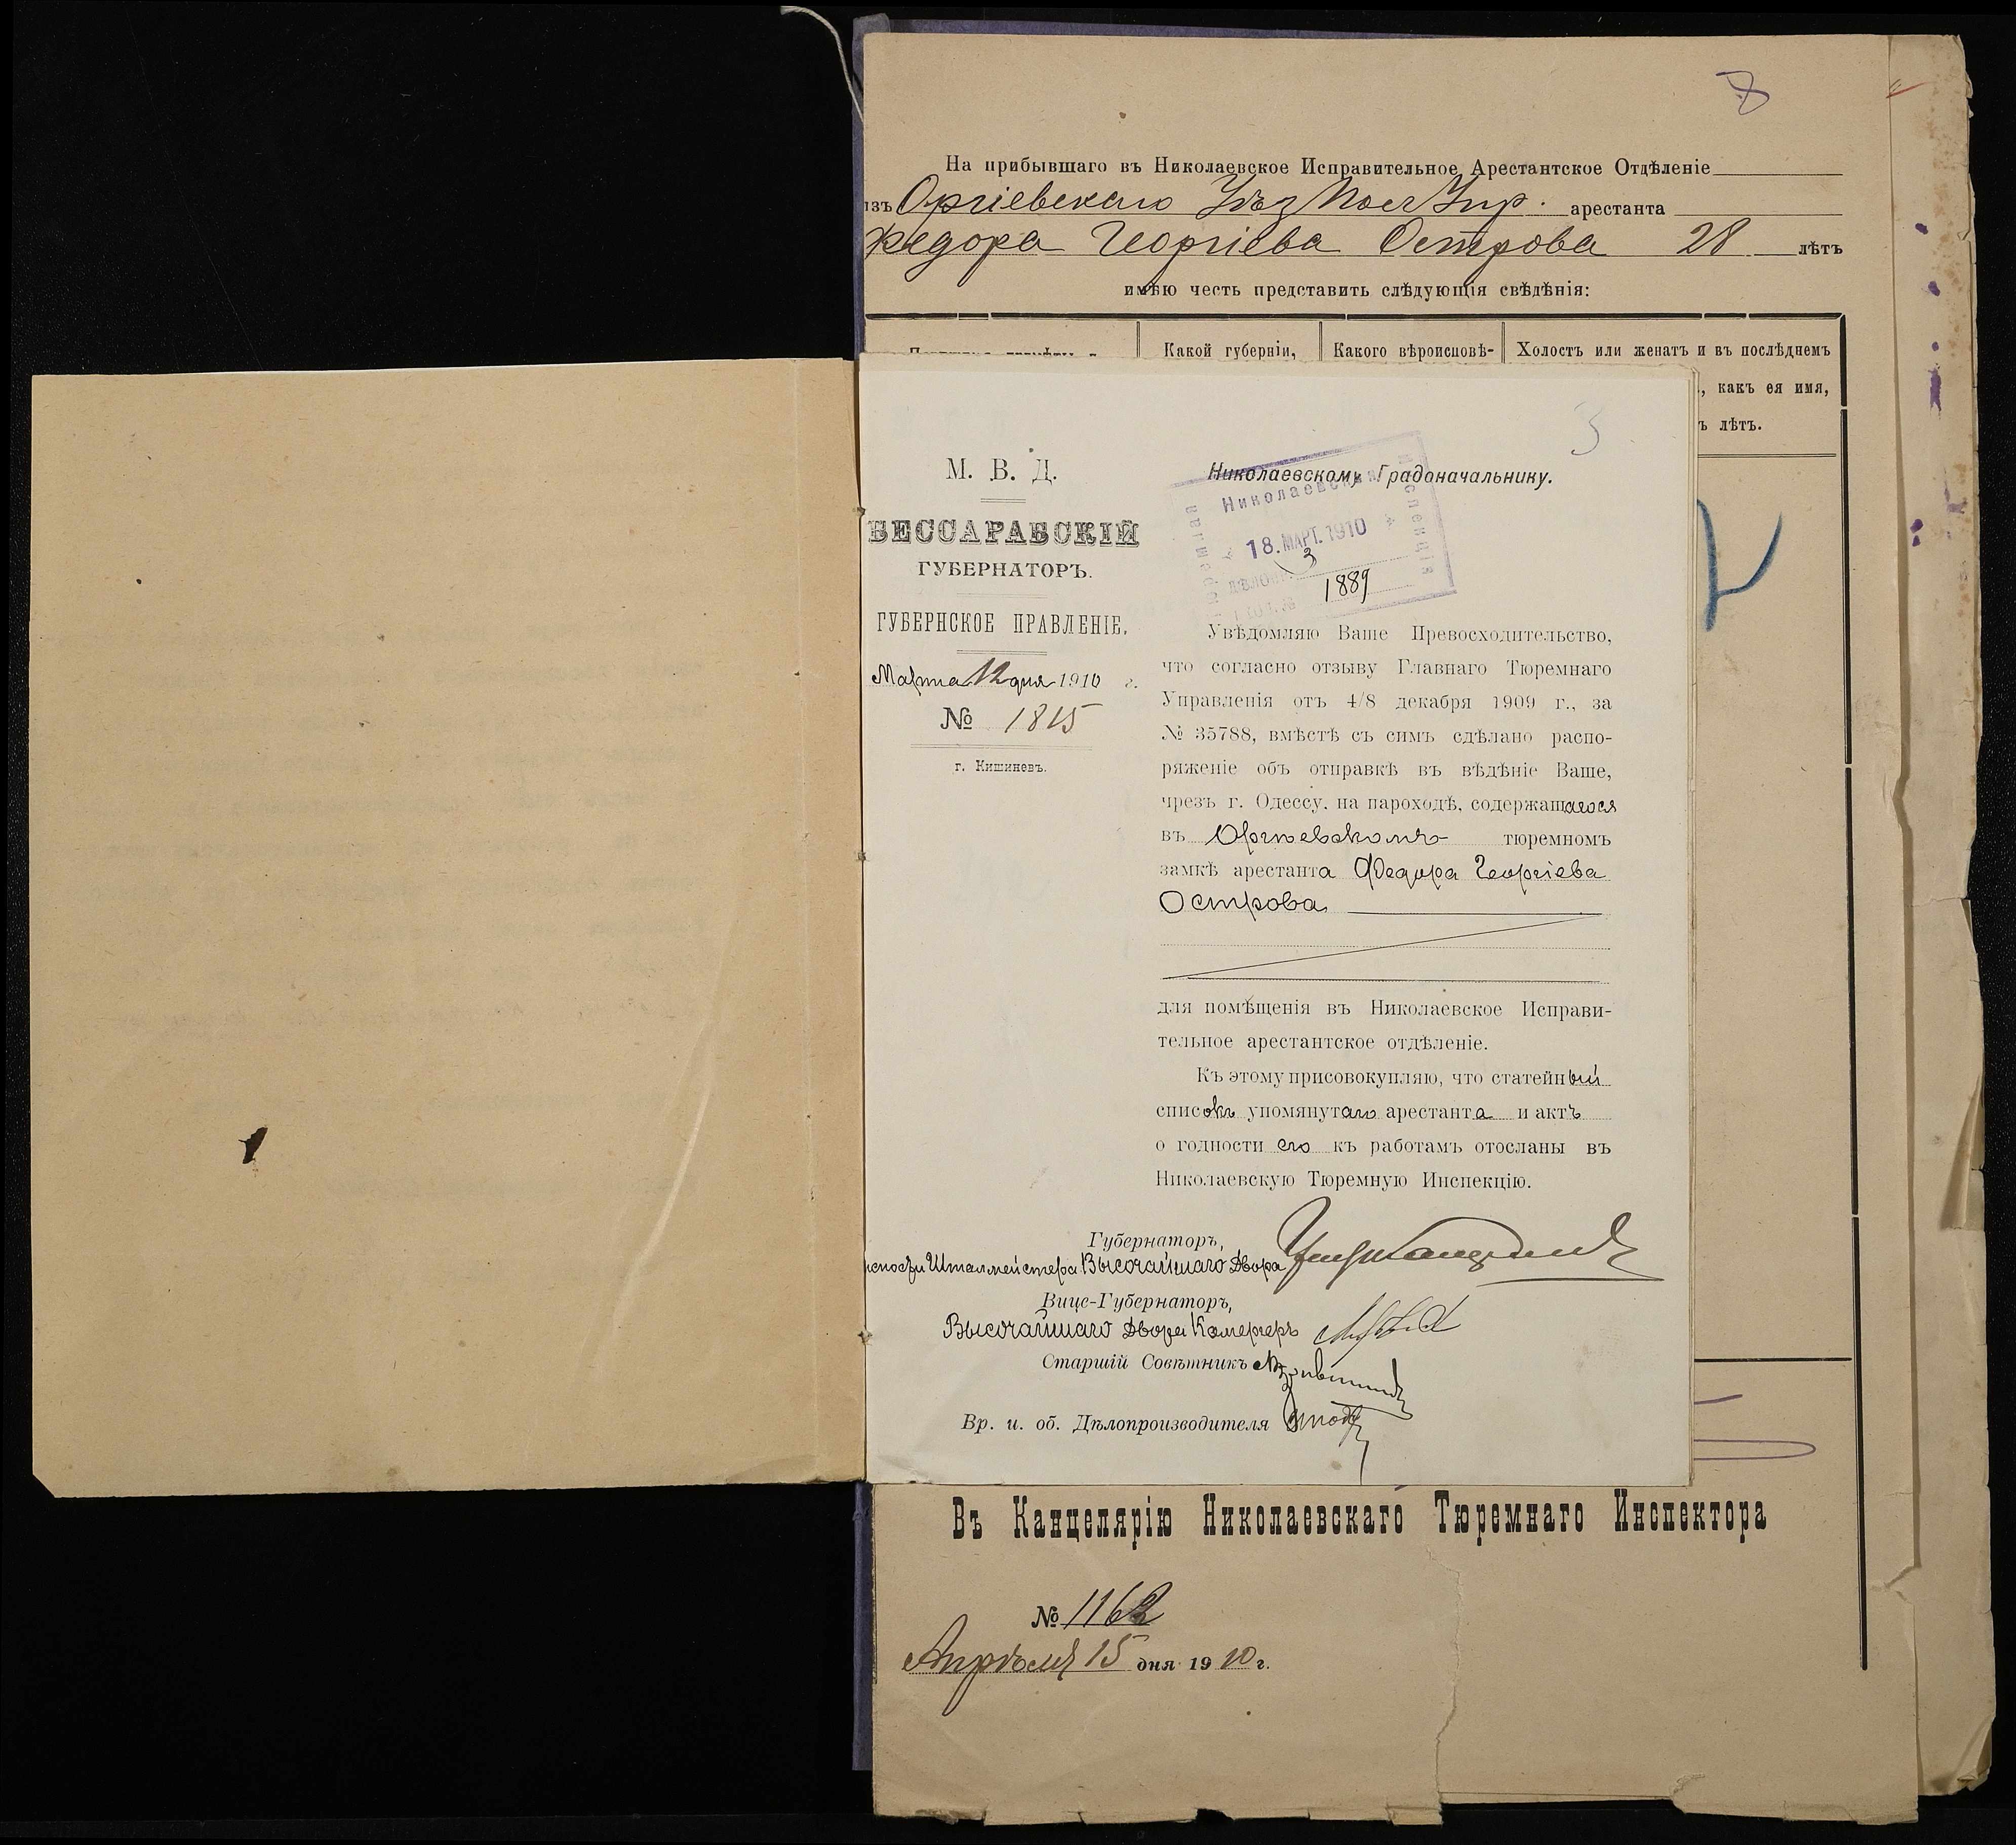 8
На прибывшаго въ Николаевское Исправительное Арестантское Отдѣленіе
изъ Оргіевскаго Уѣз Упр. арестанта
Федора Георгіева Острова 28 лѣтъ
имѣю честь представить слѣдующія свѣдѣнія:
Какой губерніи,
Какого вѣроисповѣ-
Холостъ или женатъ и въ послѣднемъ
, какъ ея имя,
ъ лѣтъ.
3
М. В. Д.
БЕССАРАБСКІЙ
ГУБЕРНАТОРЪ.
ГУБЕРНСКОЕ ПРАВЛЕНІЕ.
Марта 12 дня 1910 г.
№ 1815
г. Кишиневъ.
Николаевскому Градоначальнику.
Николаевская
инспекція
18. МАРТ. 1910
3
1889
Увѣдомляю Ваше Превосходительство,
что согласно отзыву Главнаго Тюремнаго
Управленія отъ 4/8 декабря 1909 г., за
№ 35788, вмѣстѣ съ симъ сдѣлано распо-
ряженіе объ отправкѣ въ вѣдѣніе Ваше,
чрезъ г. Одессу, на пароходѣ, содержащагося
въ Оргѣевскомъ тюремномъ
замкѣ арестанта Федора Георгіева
Острова
для помѣщенія въ Николаевское Исправи-
тельное арестантское отдѣленіе.
Къ этому присовокупляю, что статейный
списокъ упомянутаго арестанта и актъ
о годности его къ работамъ отосланы въ
Николаевскую Тюремную Инспекцію.
Губернаторъ,
Шталмейстера Высочайшаго Двора
Вице-Губернаторъ,
Высочайшаго Двора Камергеръ
Старшій Совѣтникъ
Вр. и. об. Дѣлопроизводителя
Въ Канцелярію Николаевскаго Тюремнаго Инспектора
№ 1162
Апрѣля 15 дня 1910 г.